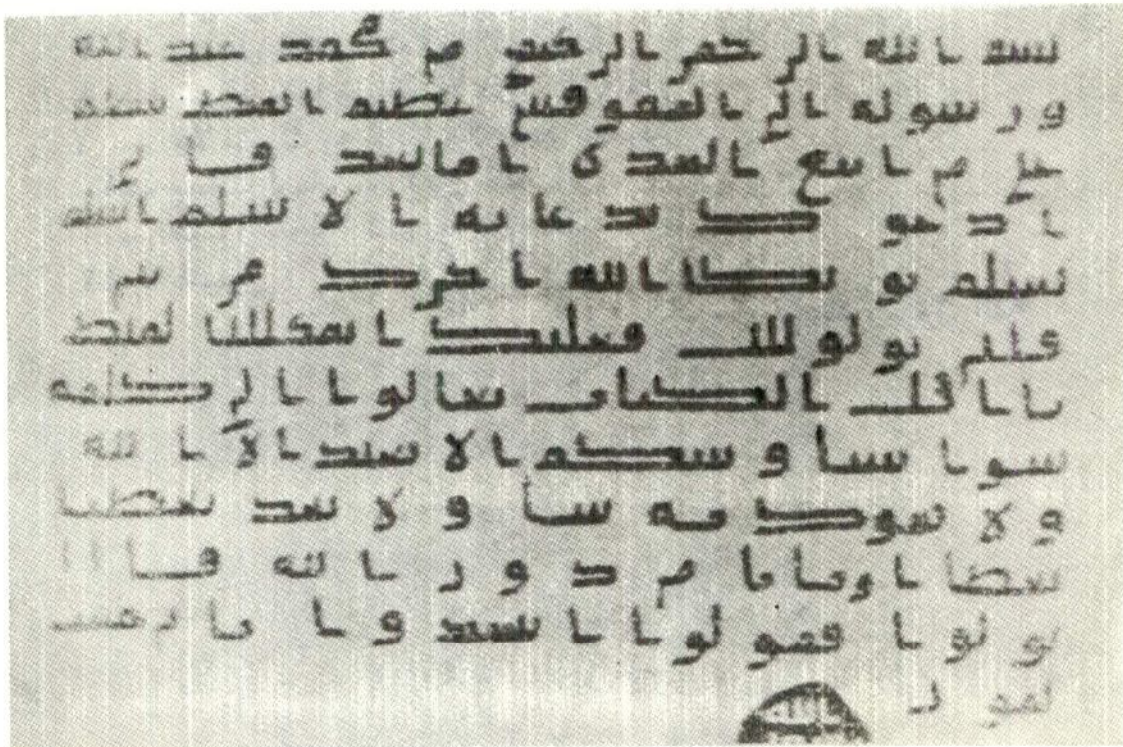 بسم الله الرحمن الرحيم من محمد عبد الله
ورسوله الى المقوقس عظيم القبط سلم
على من اتبع الهدى اما بعد فانى
ادعوك بدعاية الاسلم اسلم
تسلم يوتك الله اجرك مرتين
توليت فعليك القبط
يا اهل الكتاب تعالوا الى كلمة
سوا بيننا وبينكم الا نعبد الا الله
ولا نشرك به شيا ولا يتخذ بعضنا
بعضا اربابا من دون الله فان
تولوا فقولوا اشهدوا بانا مس
لمون